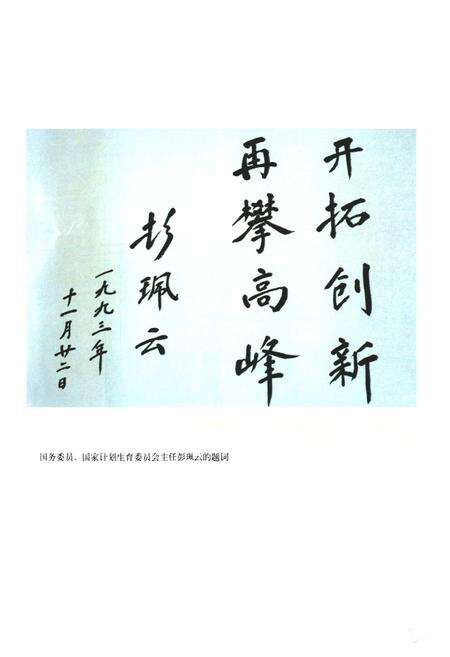 开拓创新
再攀高峰
彭珮云
一九九三年
十一月廿二日
国务委员、国家计划生育委员会主任彭珮云的题词